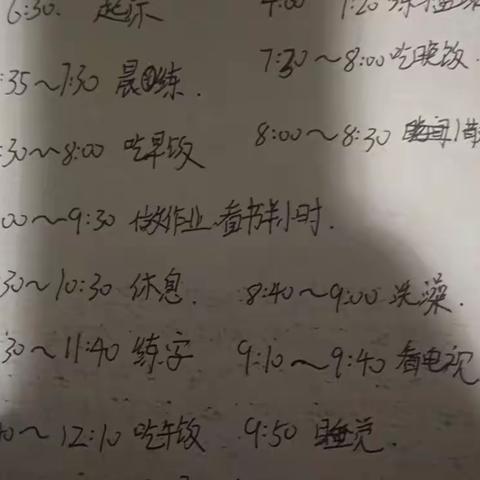 6:30. 起床
:35~7:30 晨练.
:30~8:00 吃早饭
:00~9:30 做作业 看书半小时.
:30~10:30 休息.
:30~11:40 练字
~12:10 吃午饭
7:30~8:00 吃晚饭.
8:00~8:30
8:40~9:00 洗澡.
9:10~9:40 看电视
9:50 睡觉.